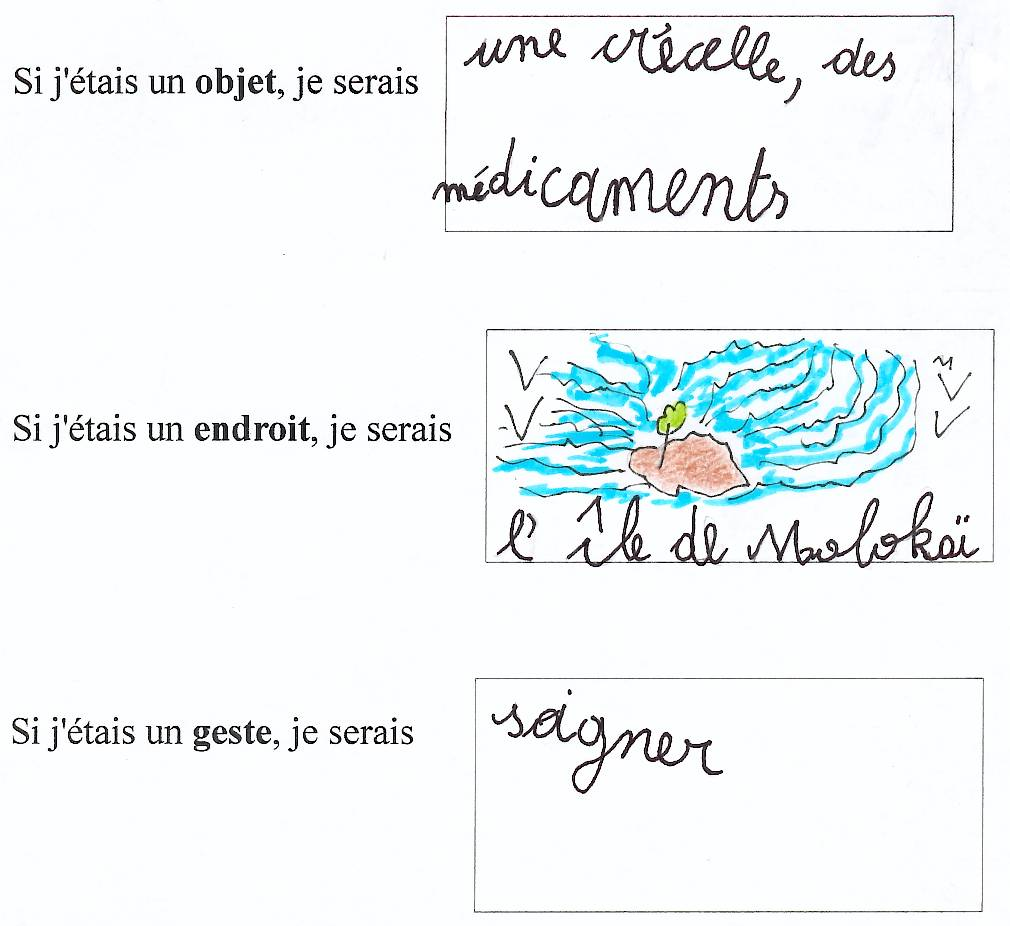 Si j'étais un objet, je serais
une crécelle, des
médicaments
Si j'étais un endroit, je serais
l'île de Molokaï
Si j'étais un geste, je serais
soigner